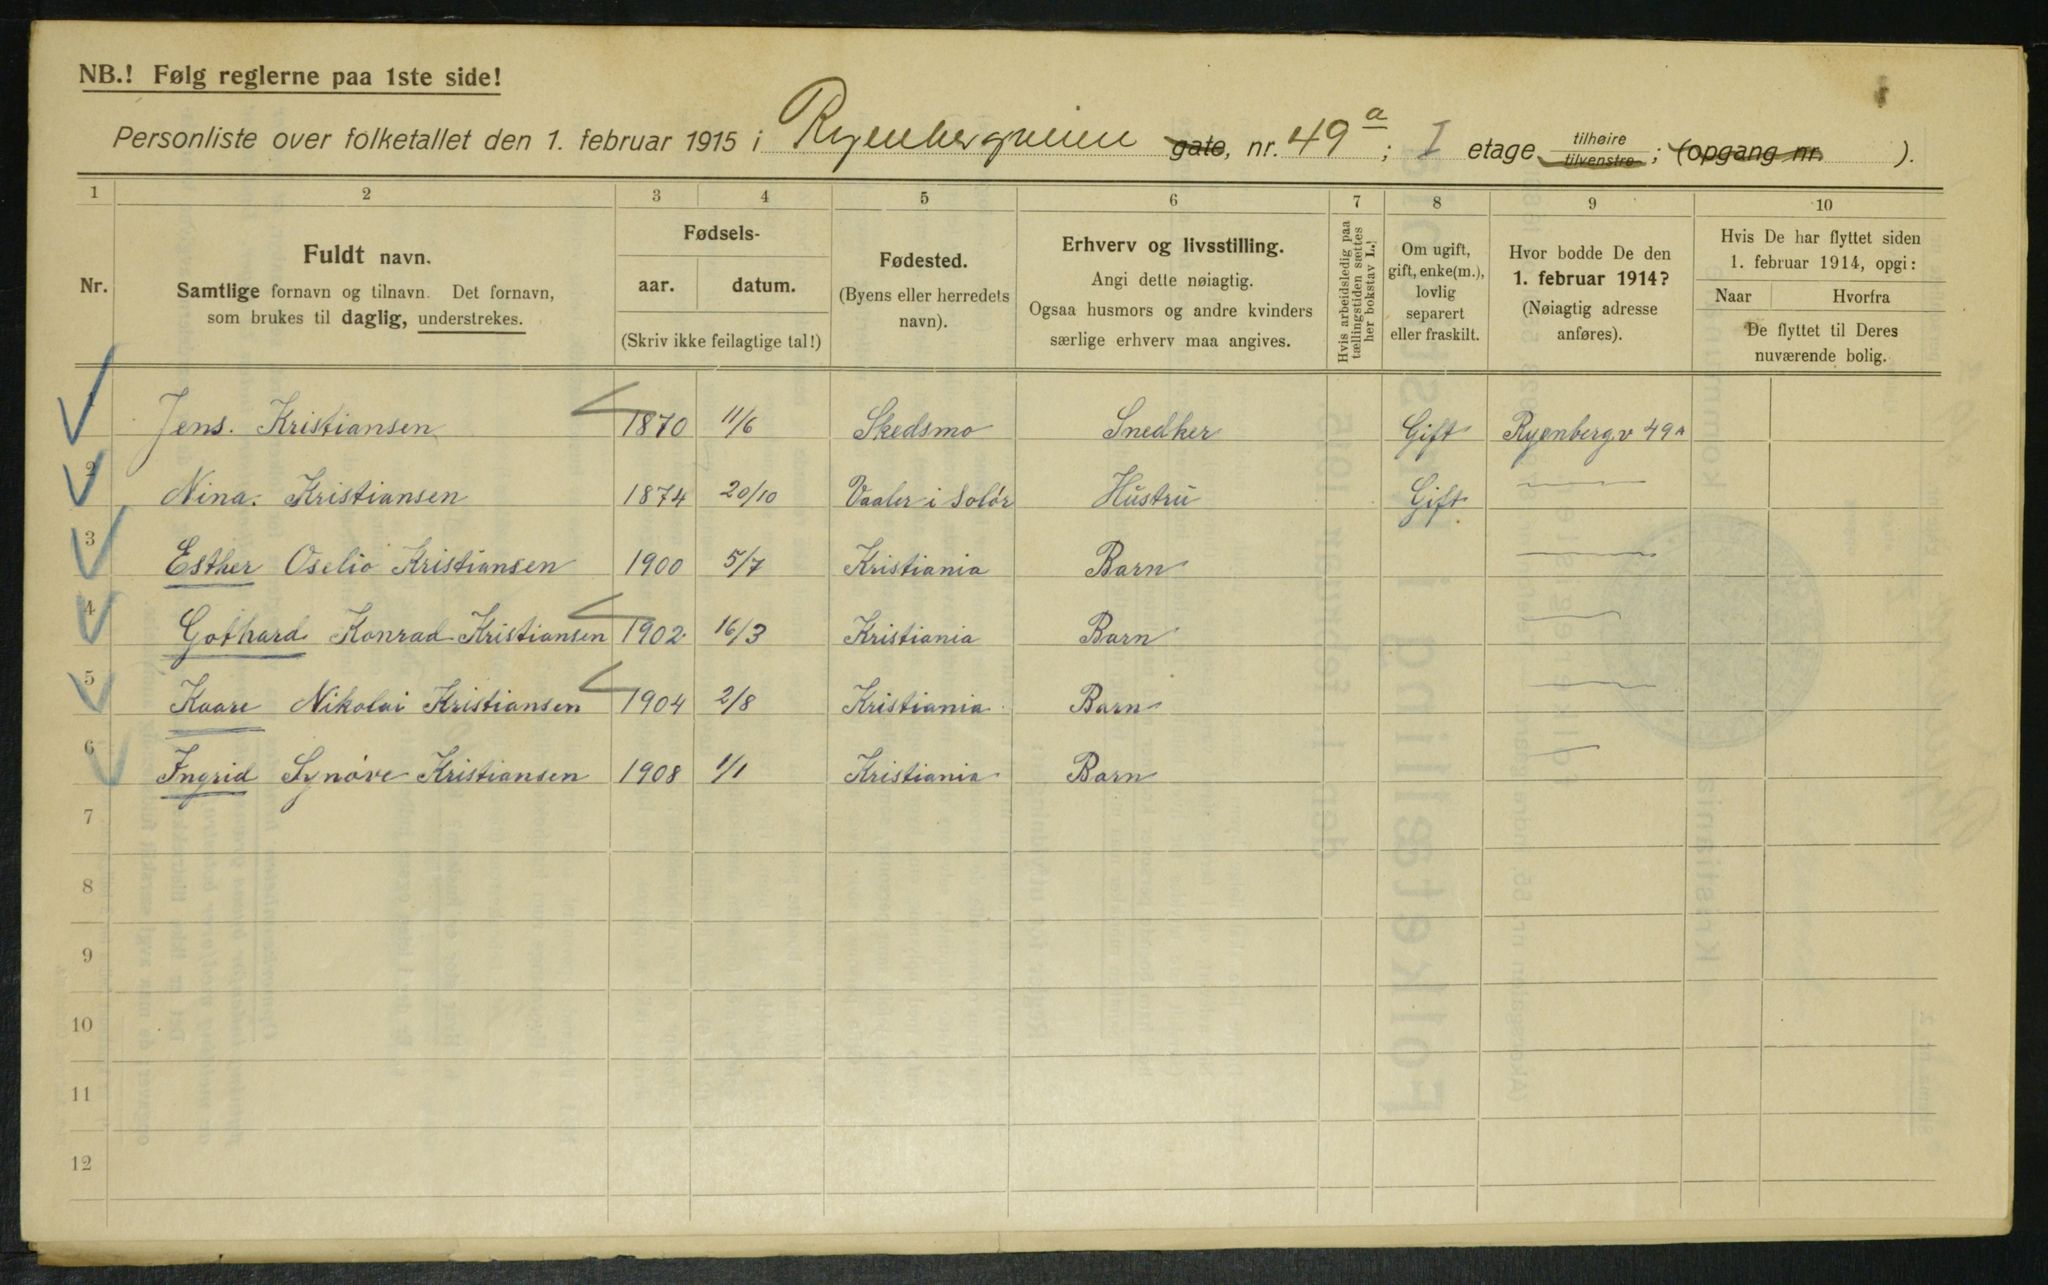 NB.! Følg reglerne paa 1ste side!
Personliste over folketallet den 1. februar 1915 i Ryenbergveien gate, nr. 49 a ; I etage tilhøire tilvenstre ; (opgang nr. ).
1 2 3 4 5 6 7 8 9 10
Nr.
Fuldt navn.
Samtlige fornavn og tilnavn. Det fornavn,
som brukes til daglig, understrekes.
Fødsels-
aar. datum.
(Skriv ikke feilagtige tal!)
Fødested.
(Byens eller herredets
navn).
Erhverv og livsstilling.
Angi dette nøiagtig.
Ogsaa husmors og andre kvinders
særlige erhverv maa angives.
Hvis arbeidsledig paa
tællingstiden sættes
her bokstav L.!
Om ugift,
gift, enke(m.),
lovlig
separert
eller fraskilt.
Hvor bodde De den
1. februar 1914?
(Nøiagtig adresse
anføres).
Hvis De har flyttet siden
1. februar 1914, opgi:
Naar Hvorfra
De flyttet til Deres
nuværende bolig.
1 Jens. Kristiansen 1870 11/6 Skedsmo Snedker Gift Ryenberg.v 49a
2 Nina. Kristiansen 1874 20/10 Vaaler i Solør Hustru Gift
3 Esther Oselio Kristiansen 1900 5/7 Kristiania Barn
4 Gothard Konrad Kristiansen 1902 16/3 Kristiania Barn
5 Kaare Nikolai Kristiansen 1904 2/8 Kristiania Barn
6 Ingrid Synøve Kristiansen 1908 1/1 Kristiania Barn
7
8
9
10
11
12